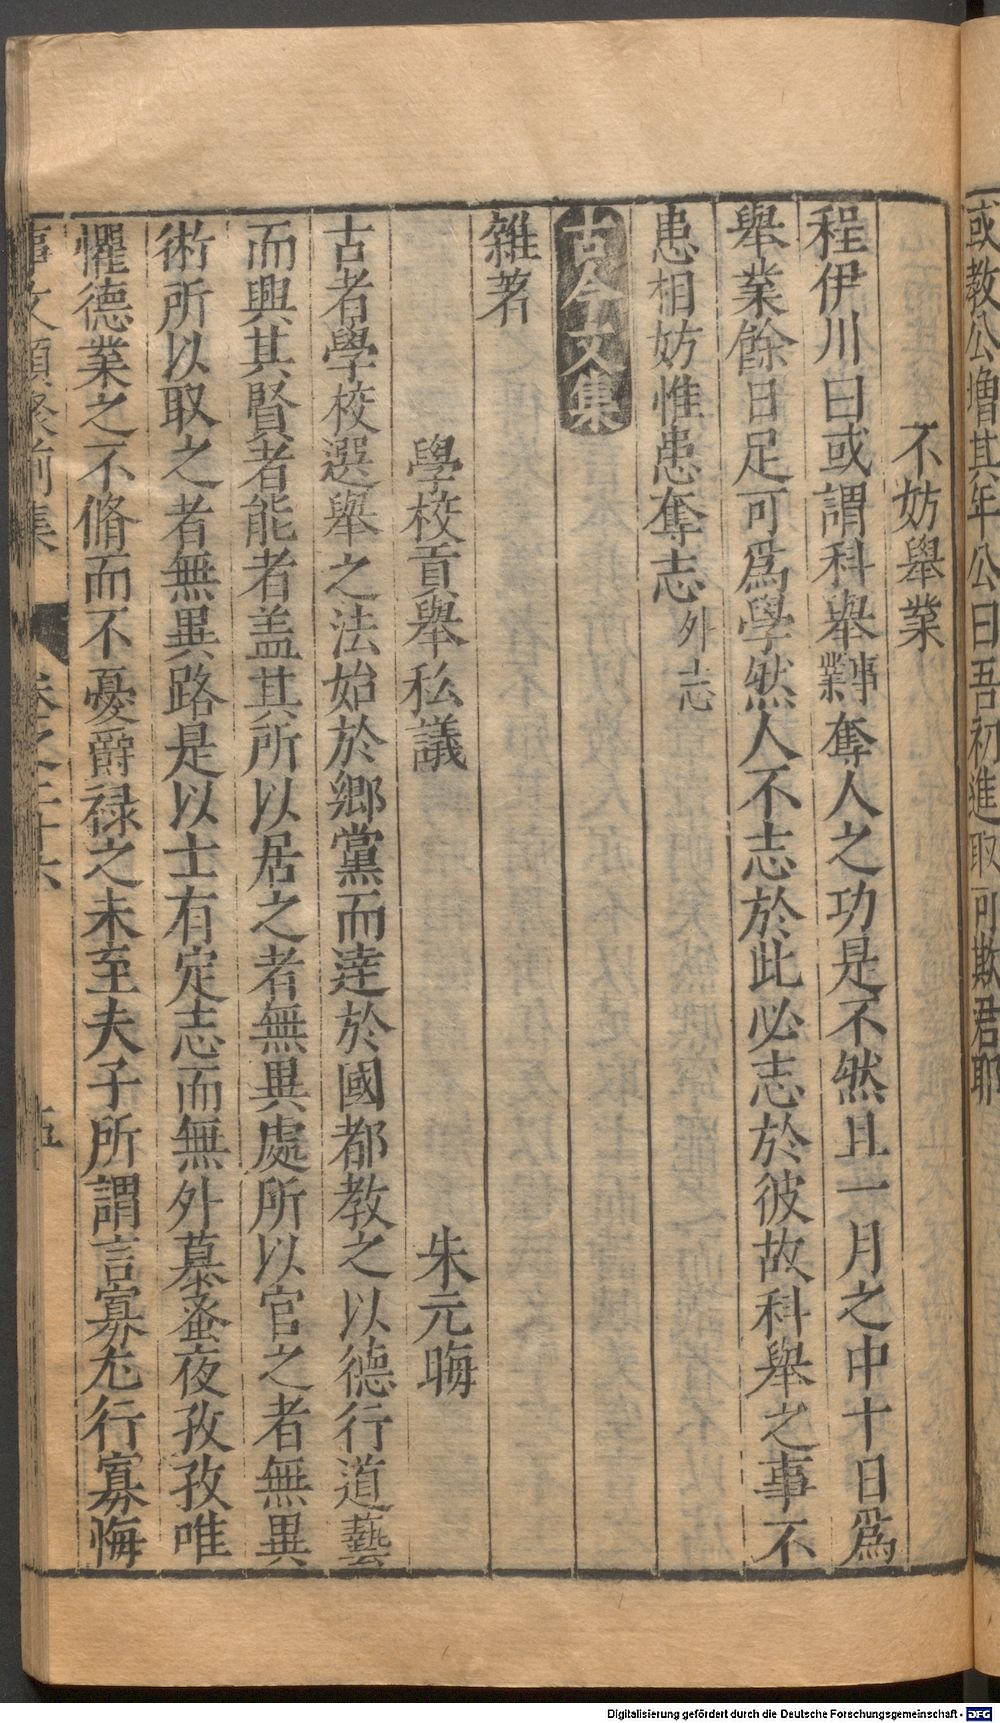 或教公增其年公曰吾初進取可欺君耶
不妨舉業
程伊川曰或謂科舉事業奪人之功是不然且一月之中十日爲
舉業餘日足可爲學然人不志於此必志於彼故科舉之事不
患相妨惟患奪志外志
古今文集
雜著
學校貢舉私議 朱元晦
古者學校選舉之法始於鄉黨而達於國都教之以德行道藝
而興其賢者能者盖其所以居之者無異處所以官之者無異
術所以取之者無異路是以士有定志而無外慕蚤夜孜孜唯
懼德業之不脩而不憂爵祿之未至夫子所謂言寡尤行寡悔
事文類聚前集 卷之二十六 五
Digitalisierung gefördert durch die Deutsche Forschungsgemeinschaft - DFG